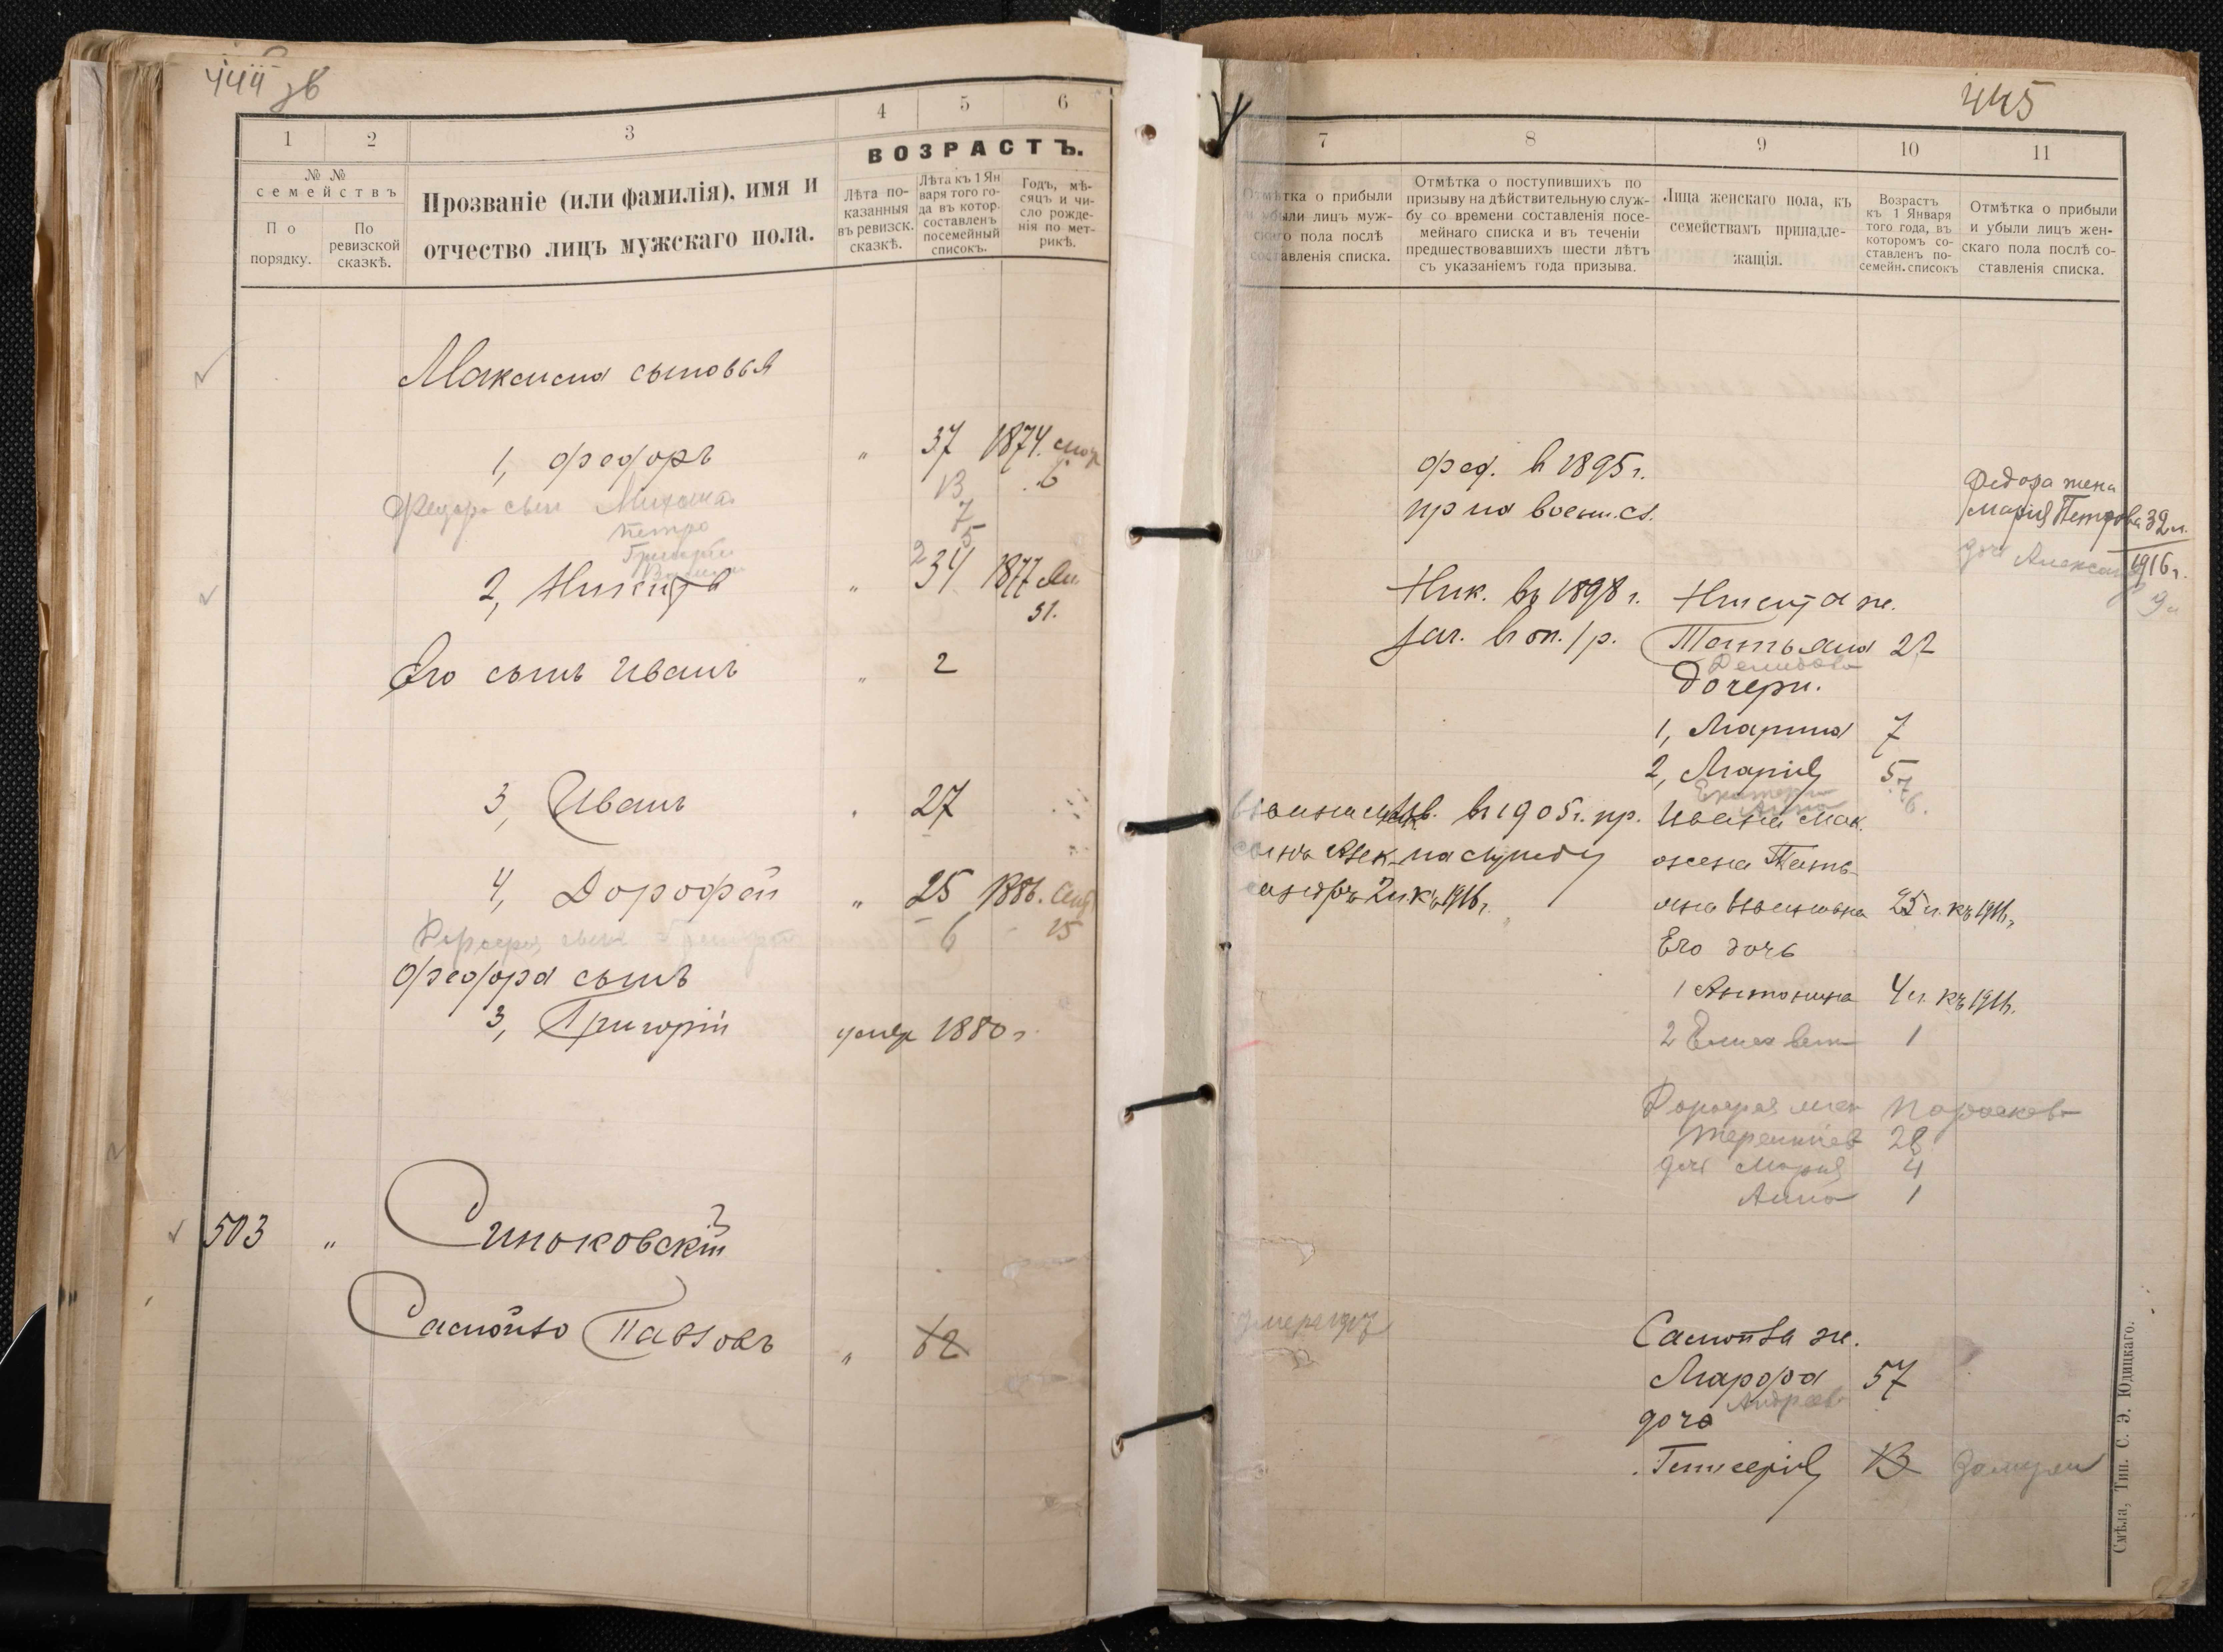 444 зв
1
2
3
4
5
6
№ №
семействъ
По
порядку.
По
ревизской
сказкѣ.
Прозваніе (или фамилія), имя и
отчество лицъ мужскаго пола.
ВОЗРАСТЪ.
Лѣта по-
казанныя
въ ревизск.
сказкѣ.
Лѣта къ 1 Ян
варя того го-
да въ котор.
составленъ
посемейный
списокъ.
Годъ, мѣ-
сяцъ и чи-
сло рожде-
нія по мет-
рикѣ.
Максима сыновья
1, Федоръ " 37 1874.
6
Федора сын Михаил 13
Петро 7
Григорій 5
2
2, Никита " 34 1877 Ян.
31.
Его сынъ Иванъ " 2
3, Иванъ 27
4, Дорофей " 25 1886. Сент
15
Дорофея сын Григорій 6
Федора сынъ
3, Григорій умер 1880 г
503 " Синоковскій
Самойло Павловъ " 62
445
7
8
9
10
11
Отмѣтка о прибыли
и убыли лицъ муж-
скаго пола послѣ
составленія списка.
Отмѣтка о поступившихъ по
призыву на дѣйствительную служ-
бу со времени составленія посе-
мейнаго списка и въ теченіи
предшествовавшихъ шести лѣтъ
съ указаніемъ года призыва.
Лица женскаго пола, къ
семействамъ принадле-
жащія.
Возрастъ
къ 1 Января
того года, въ
которомъ со-
ставленъ по-
семейн. списокъ
Отмѣтка о прибыли
и убыли лицъ жен-
скаго пола послѣ со-
ставленія списка.
Фед. в 1895 г.
пр на воен. сл.
Федора жена
Мария Петрова 32 л.
1916 г.
доч Александ
9 л
Ник. въ 1898 г.
зач. в оп. 1 р.
Никита ж.
Татьяна 22
Демидова
Дочери.
1, Марина 7
2, Марія 5
Екатери 7
Анна 6.
Ивана
сынъ Алек-
сандръ 2 л. къ 1916 г.
Ив. в 1905 г. пр.
на службу
Ивана Мак.
жена Тать-
яна Ивановна 25 л. къ 1916 г.
Его дочь
1 Антонина 4 л. къ 1916.
2 Елизавет 1
Дорофея жен Парасков
Терентиев 28
доч Мария 4
Анна 1
умер 1917
Самойла ж.
Марфа 57
Андреев
дочь
Гликерія 13 замужем
Смѣла, Тип. С. Э. Юдицкаго.